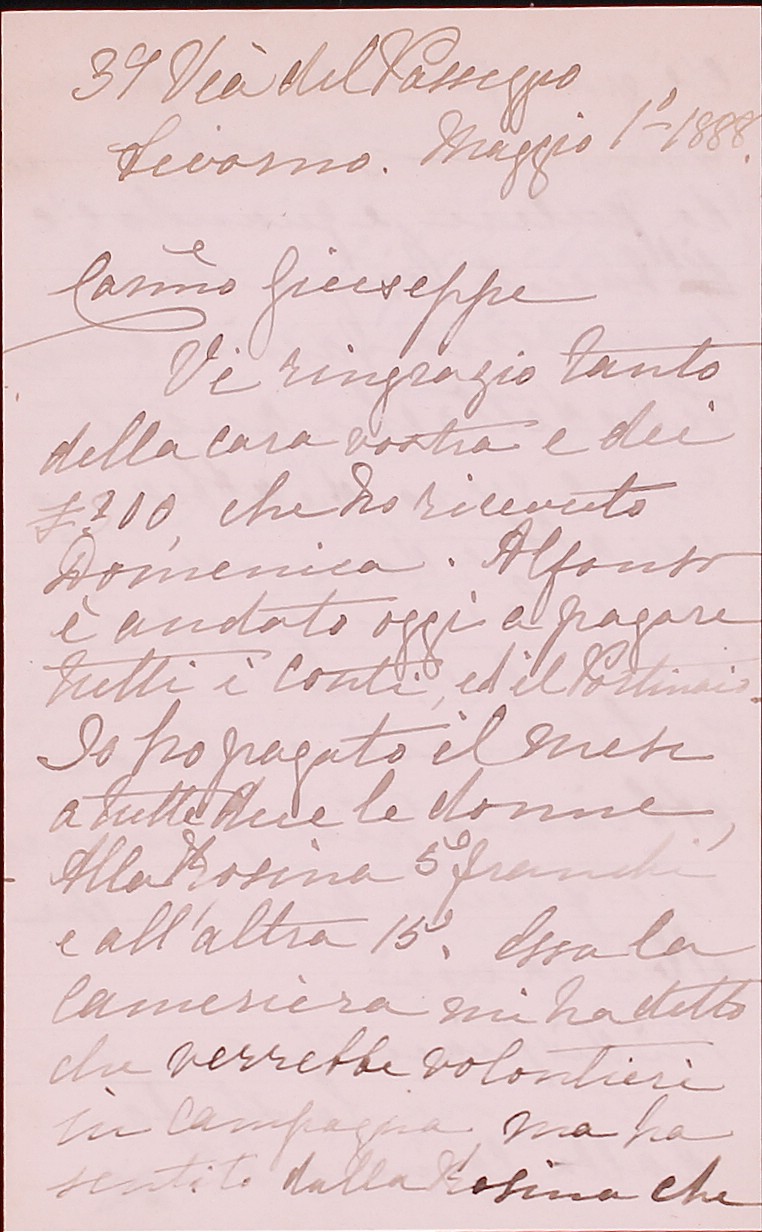 39 Via del Passeggio
Livorno. Maggio 1º 1888.
Carmo Giuseppe
Vi ringrazio tanto
della cara vostra e dei
£300, che ho ricevuto
Domenica. Alfonso
è andato oggi a pagare
tutti i conti, ed il Portinaio.
Io ho pagato il mese
a tutte due le donne,
Alla Rosina 5 franchi
e all'altra 15. Essa la
Cameriera mi ha detto
che verrebbe volontieri
in Campagna, ma ha
sentito dalla Rosina che